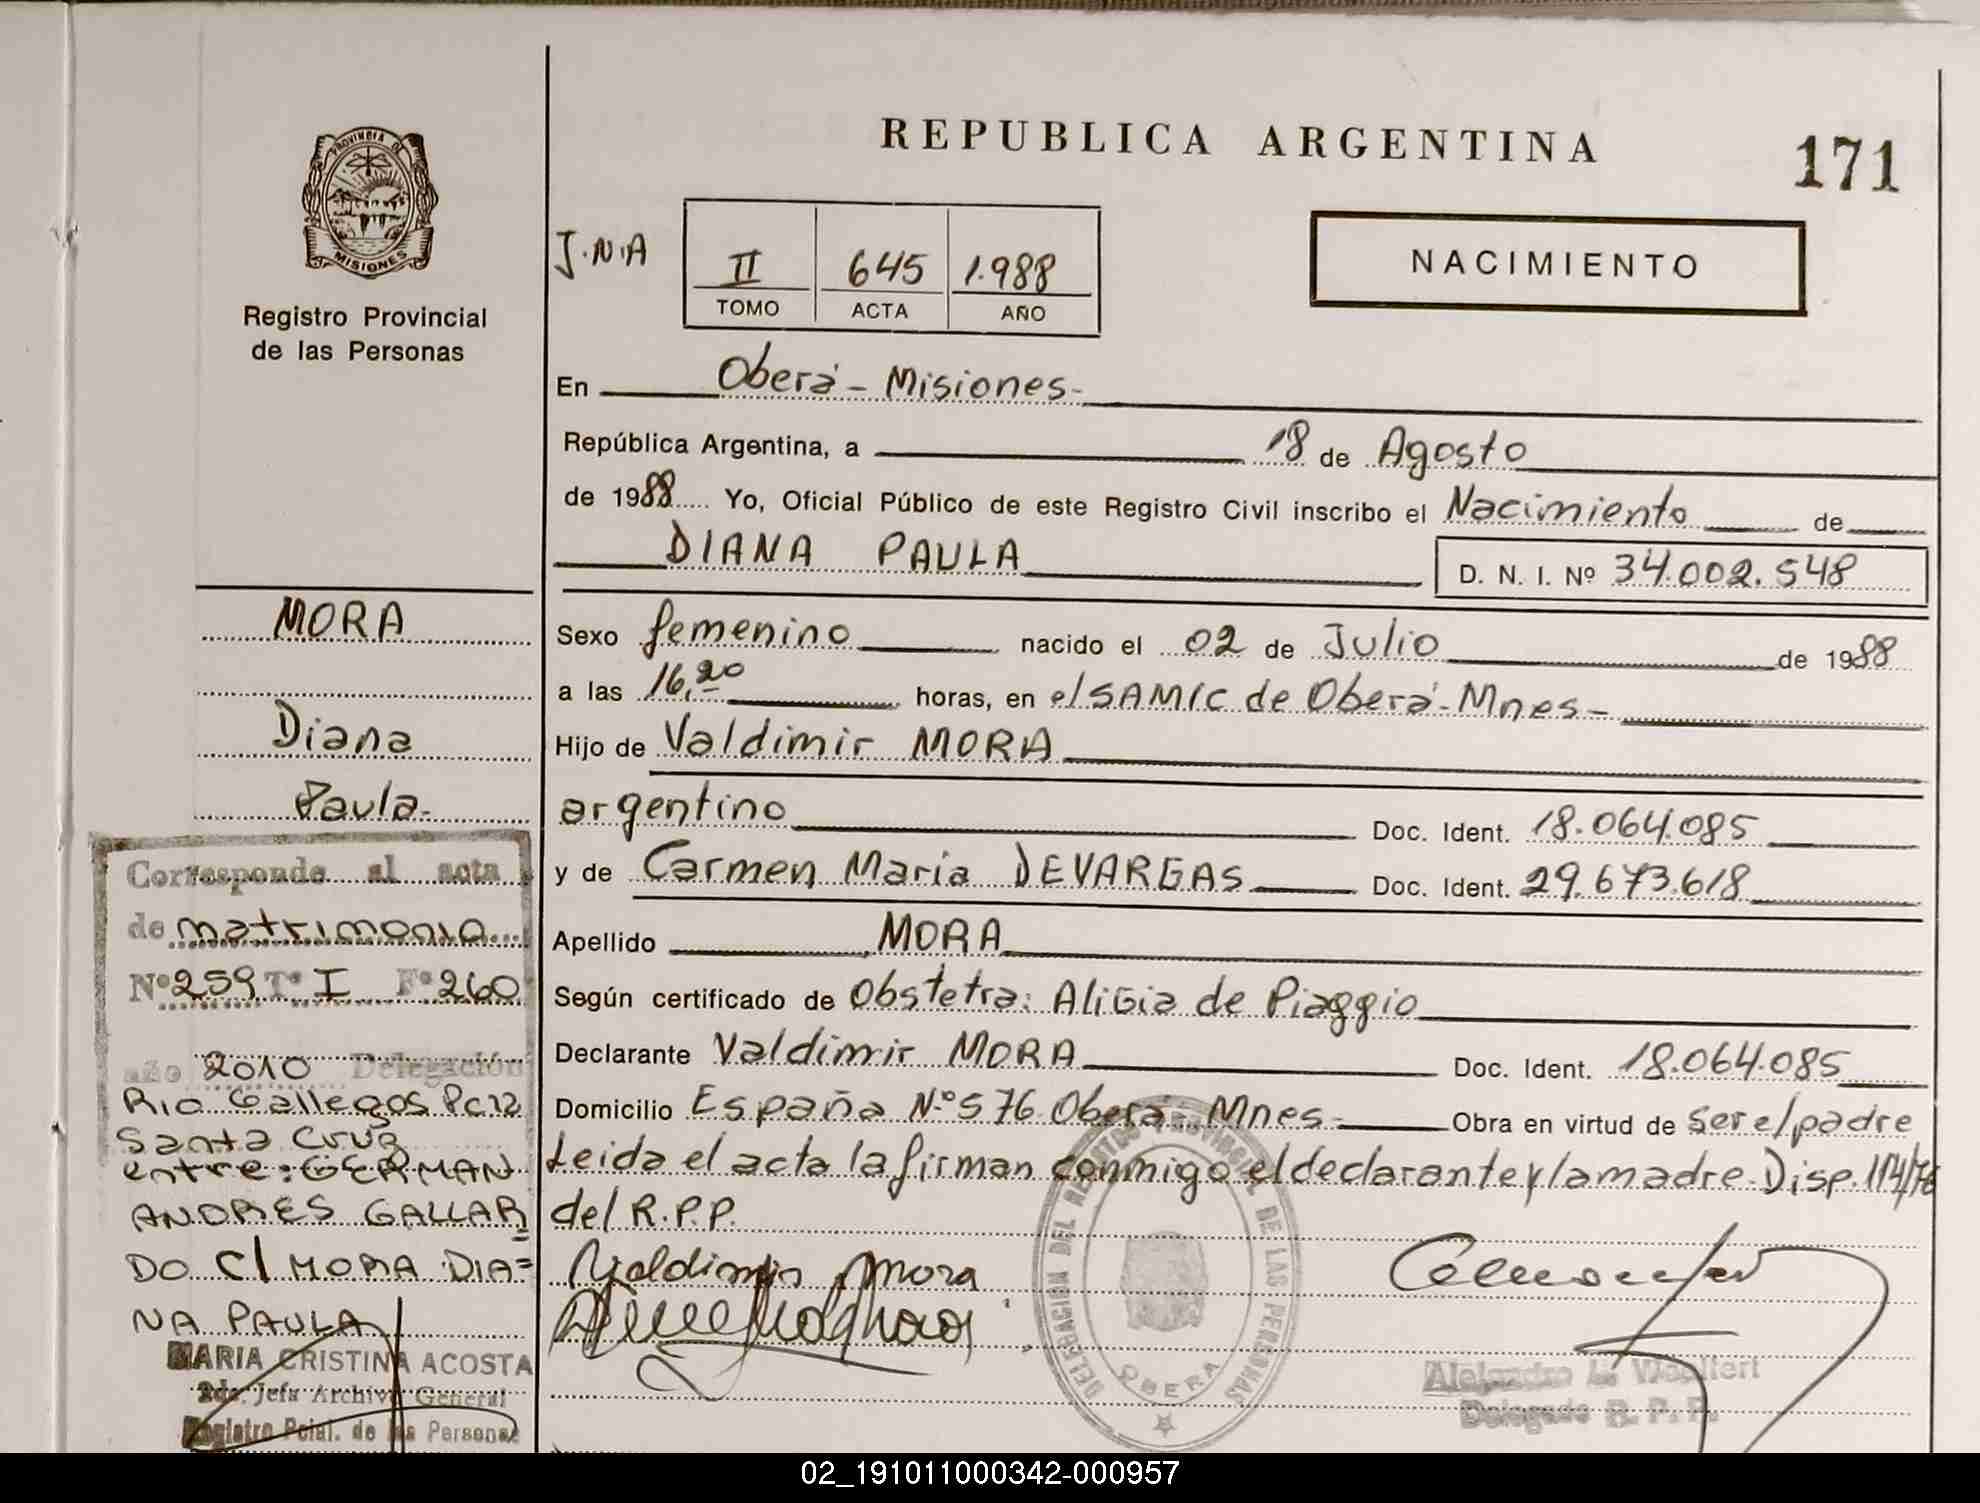 REPUBLICA ARGENTINA
171
PROVINCIA DE
MISIONES
Registro Provincial
de las Personas
J.N.A
II 645 1.988
TOMO ACTA AÑO
NACIMIENTO
En Oberá - Misiones-
República Argentina, a 18 de Agosto
de 1988 Yo, Oficial Público de este Registro Civil inscribo el Nacimiento de
DIANA PAULA D. N. I. Nº 34.002.548
Sexo femenino nacido el 02 de Julio de 1988
a las 16,20 horas, en el SAMIC de Oberá-Mnes-
Hijo de Valdimir MORA
argentino Doc. Ident. 18.064.085
y de Carmen Maria DEVARGAS Doc. Ident. 29.673.618
Apellido MORA
Según certificado de Obstetra: Aligia de Piaggio
Declarante Valdimir MORA Doc. Ident. 18.064.085
Domicilio España Nº 576 Oberá Mnes- Obra en virtud de Ser el padre
Leida el acta la firman conmigo el declarante y la madre. Disp. 114/76
del R.P.P.
Valdimir Mora
DELEGACION DEL REGISTRO PROVINCIAL DE LAS PERSONAS
OBERA
Delegado R. P. P.
MORA
Diana
Paula-
Corresponde al acta
de matrimonio
Nº 259 Tº I Fº 260
año 2010 Delegación
Rio Gallegos Pcia
Santa Cruz
entre: GERMAN
ANDRES GALLAR
DO c/ MORA DIA=
NA PAULA
MARIA CRISTINA ACOSTA
2da. Jefa Archivo General
Registro Pcial. de las Personas
02_191011000342-000957